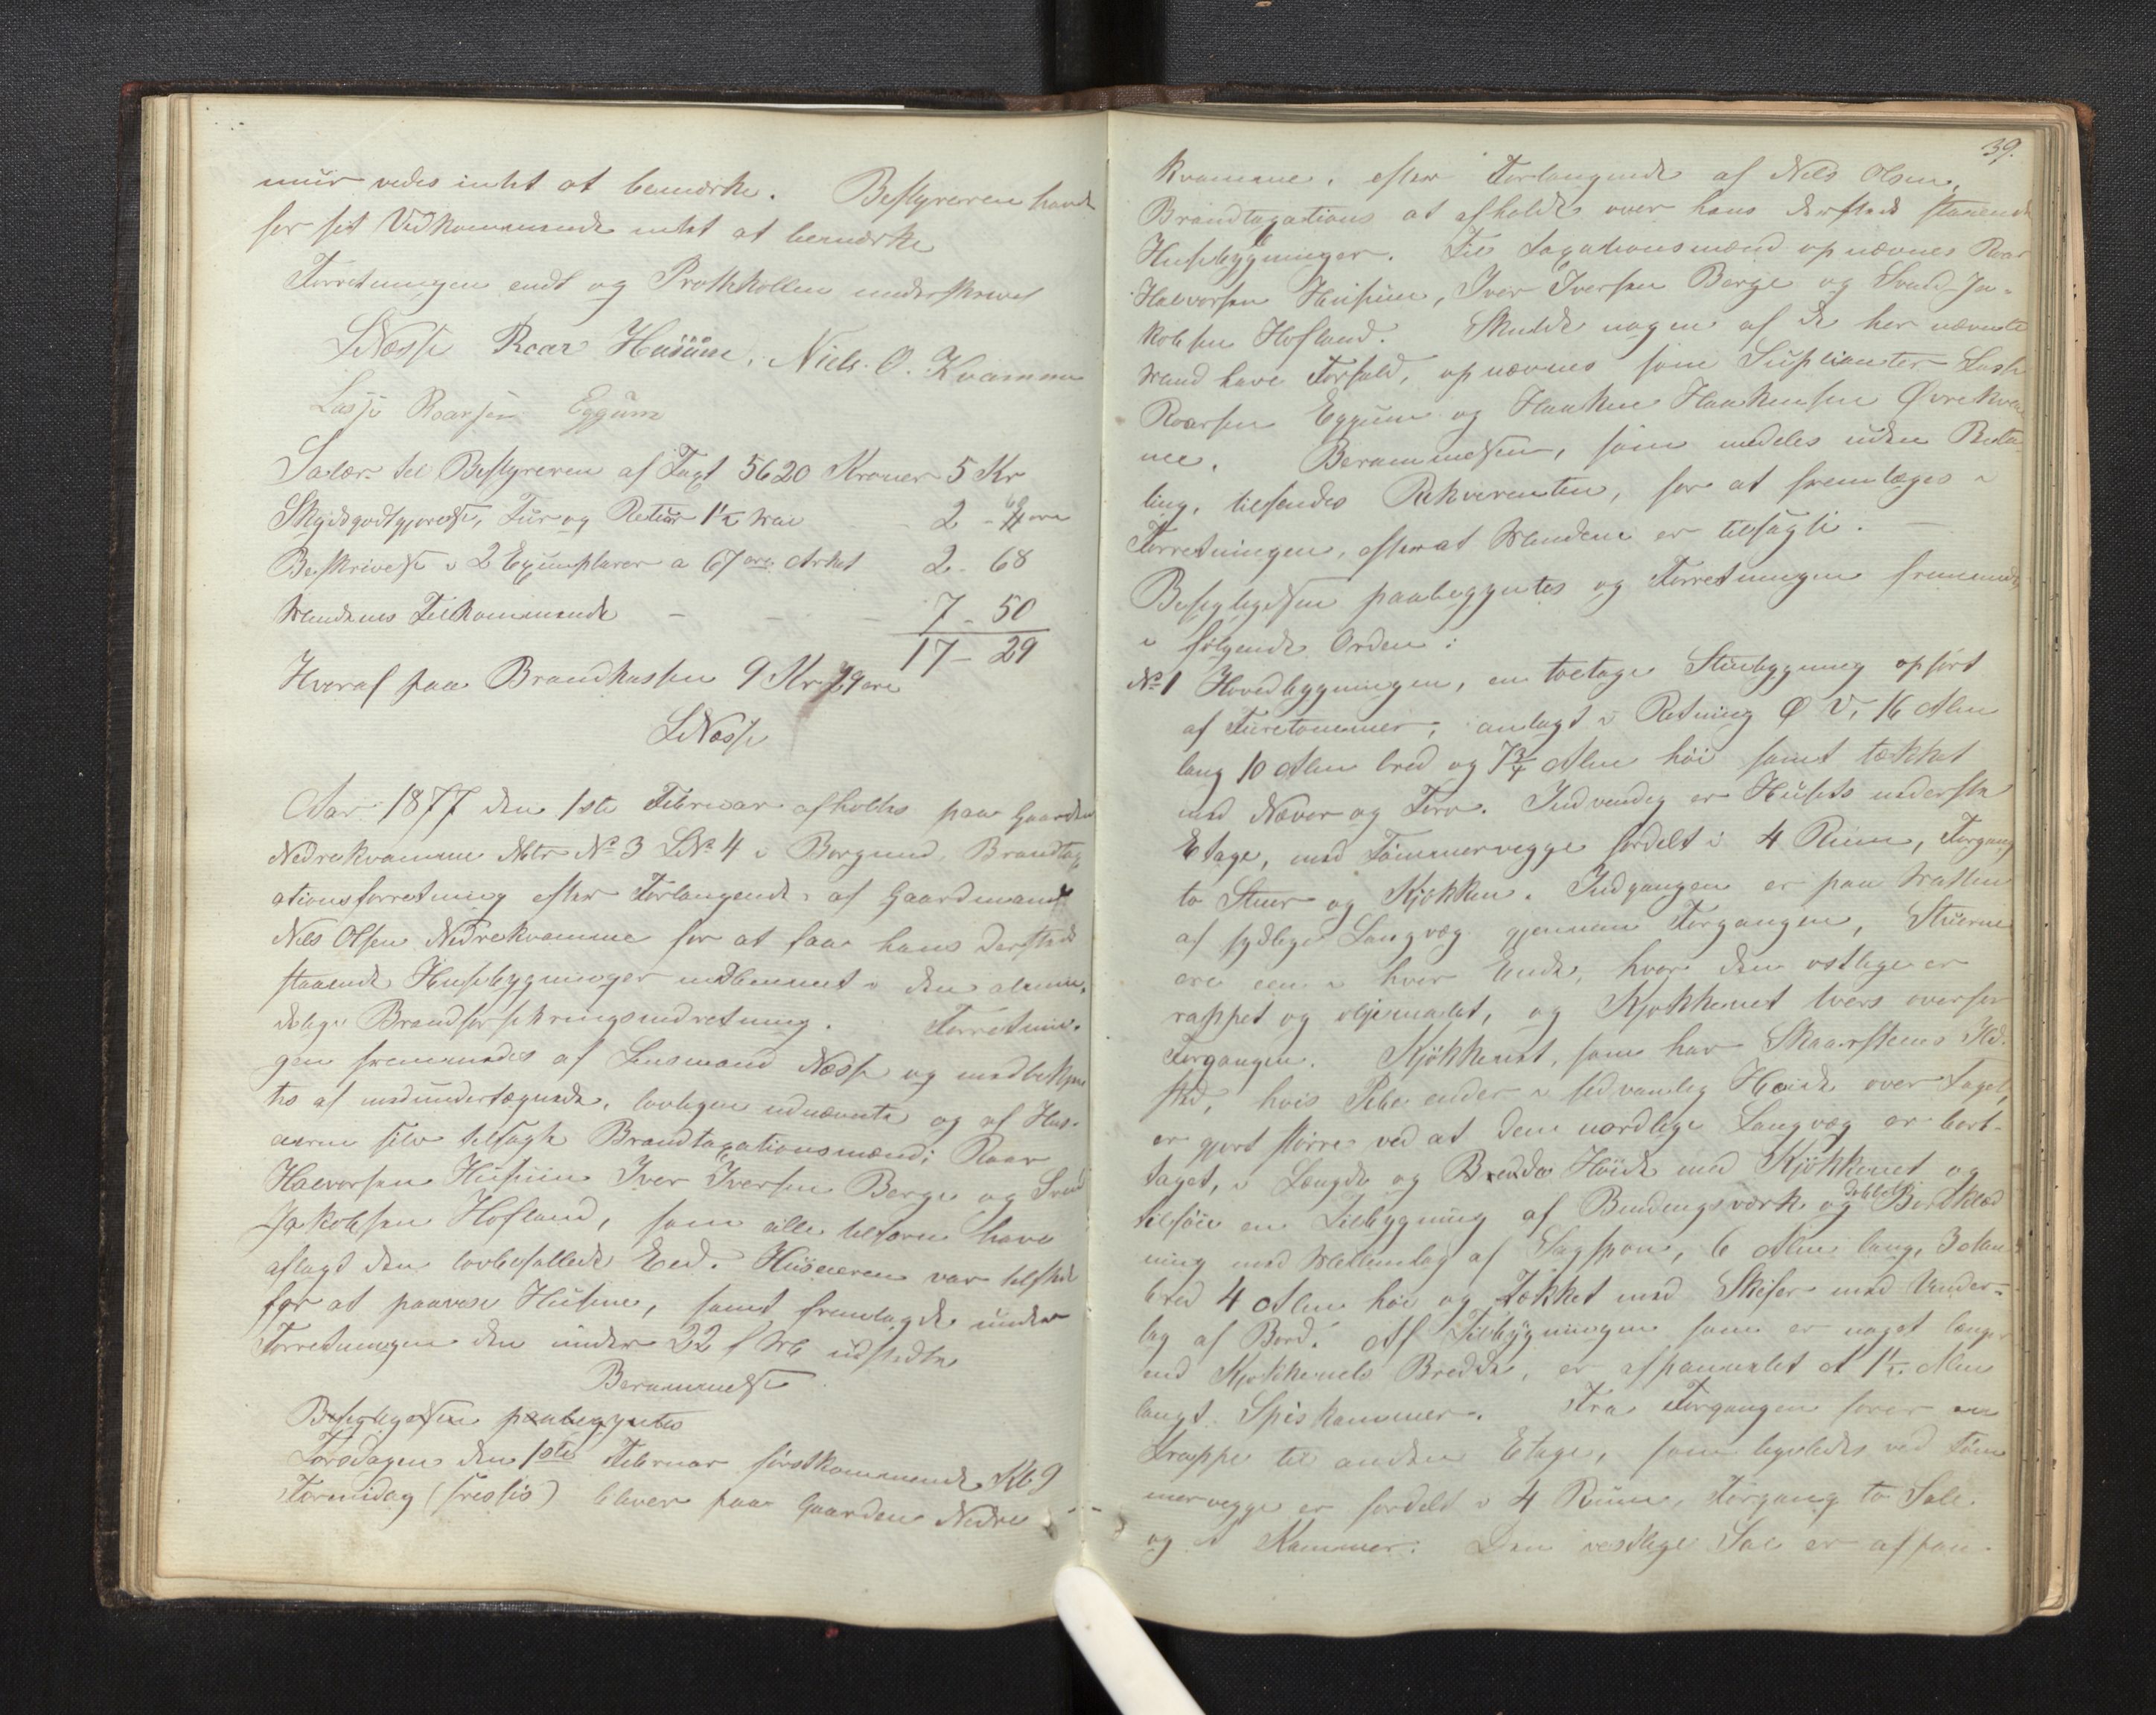 muur vides intet at bemærke. Bestyreren havde
for sit Vedkommende intet at bemærke
Forretningen endt og Prothkollen underskrevet
LNæsse Roar Husum, Niels. O. Kvamme
Lasse Roarsen Eggum
Salær til Bestyreren af Taxt 5620 Kroner 5 Kr
Skydsgodtgjørelse, Tur og Retur 1½ Mil - 2 -
Beskrivelse i 2 Exemplarer a 67 øre Arket 2 - 68
Mændenes Tilkommende - - - 7 - 50
17 - 29
Hvoraf paa Brandkassen 9 Kr 79 øre
LNæsse
Aar 1877 den 1ste Februar afholdtes paa Gaarden
Nedrekvamme Matr No 3 LNo 4 i Borgund, Brandtax
ationsforretning efter Forlangende af Gaardmand
Nils Olsen Nedrekvamme for at faa hans dersteds
staaende Husebygninger indlemmet i den almin-
delige Brandforsikringsindretning. Forretnin-
gen fremmedes af Lensmand Næsse og medbekjræ
tes af medundertegnede, lovligen udnævnte og af Hus-
eieren selv tilsagte Brandtaxationsmænd: Roar
Halvorsen Husum Iver Iversen Berge og Svend
Jakobsen Hofland, som alle tilforn have
aflagt den lovbefallede Eed. Huseieren var tilstede
for at paavise Husene, samt fremlagde under
Forretningen den under 22 f Mt udstedte
Berammelse
Besigtigelsen paabegyntes
Torsdagen den 1ste Februar førstkommende Kl 9
Formidag (præsis) bliver paa Gaarden Nedre
39.
Kvamme, efter Forlangende af Nils Olsen,
Brandtaxations at afholdes over hans dersteds staaende
Husebygninger. Til Taxationsmænd opnævnes Roar
Halvorsen Husum, Iver Iversen Berge og Svend Ja-
kobsen Hofland. Skulde nogen af de her nævnte
Mænd have Forfald, opnævnes som Suplianter Lasse
Roarsen Eggum og Haaken Haakensen Øvrekvam
me. Berammelsen, som meddeles uden Beta
ling, tilsendes Rekvirenten, for at fremlægges i
Forretningen, efterat Mændene er tilsagte. -
Besigtigelsen paabegyntes og Forretningen fremmedes
i følgende Orden:
No 1 Hovedbygningen, en toetages Stuebygning opført
af Furetømmer, anlagt i Retning Ø V, 16 Alen
lang 10 Alen bred og 7¾ Alen høi samt tækket
med Næver og Torv. Indvendig er Husets nederste
Etage, med Tømmervegge fordelt i 4 Rum, Forgang
to Stuer og Kjøkken. Indgangen er paa Midten
af sydlige Langvæg gjennem Forgangen, Stuerne
ere een i hver Ende, hvor den østlige er
rappet og oljemalet, og Kjøkkenet tvers overfor
Forgangen. Kjøkkenet, som har Skaarsteens Ild-
sted, hvis Pibe ender i sedvanlig Høide over Taget,
er gjort større ved at den nordlige Langvæg er bort-
taget, i Længde og Høide med Kjøkkenet og
tilføiet en Tilbygning af Bindingsværk og dobbelt Bordklæd
ning med Mellemlag af Sagspon, 6 Alen lang, 3 Alen
bred 4 Alen høi og Tækket med Skifer med Under-
lag af Bord. Af Tilbygningen som er noget længer
end Kjøkkenets Bredde, er afpannelet et 1½ Alen
langt Spiskammer. Fra Forgangen fører en
Trappe til anden Etage, som ligeledes ved Tøm
mervegge er fordelt i 4 Rum, Forgang to Sale
og et Kammer. Den vestlige Sal er afpan-